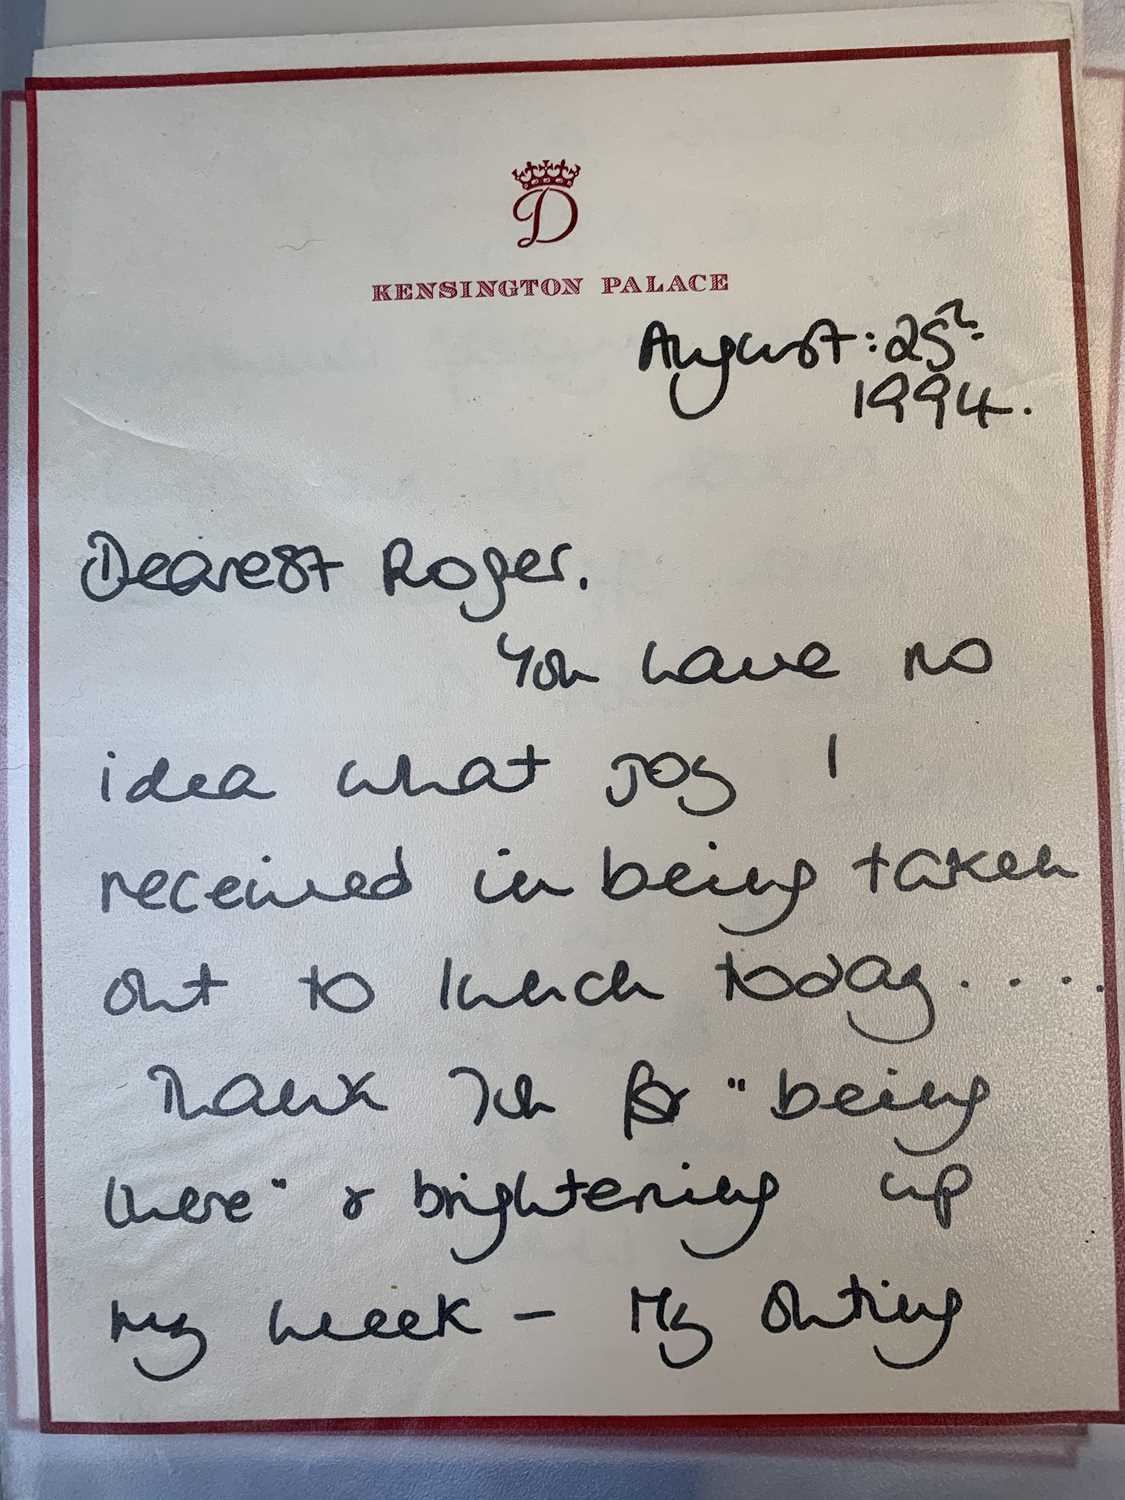 D
KENSINGTON PALACE
August: 25th
1994.
Dearest Roger.
You have no
idea what joy I
received in being taken
out to lunch today....
Thank you for "being
there" & brightening up
my week - My outing